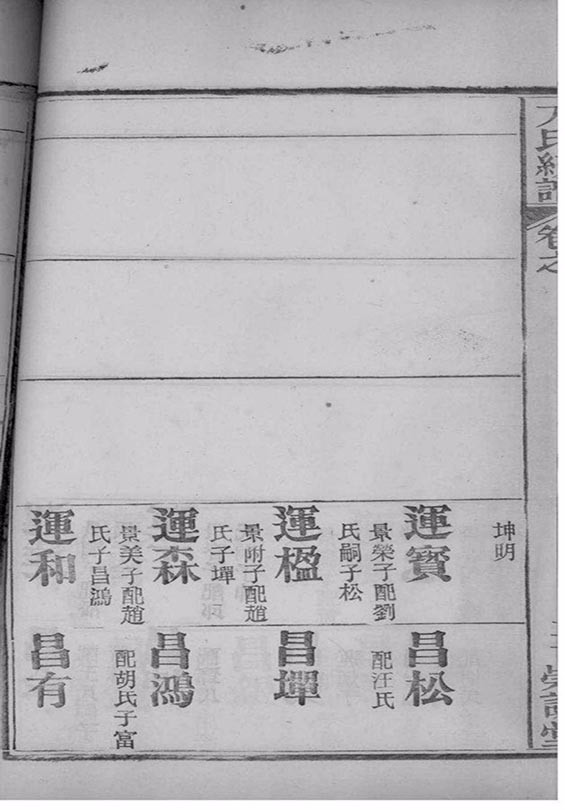 氏統譜
卷之
坤明
運寶
景榮子配劉
氏嗣子松
運楹
景附子配趙
氏子墠
運森
景美子配趙
氏子昌鴻
運和
昌松
配汪氏
昌墠
昌鴻
配胡氏子富
昌有